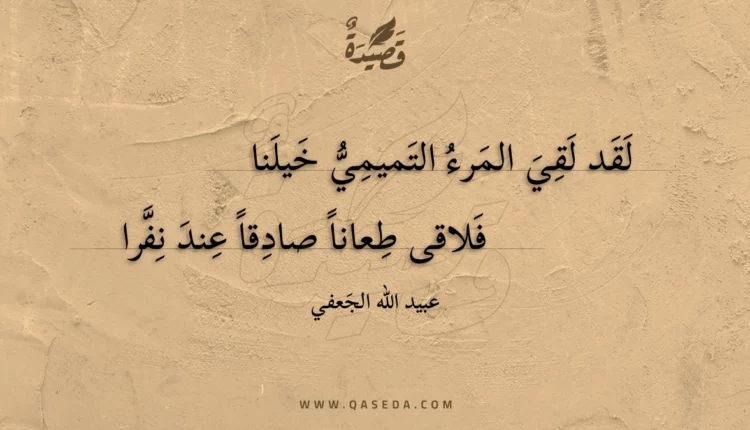 قَصِيْدَةٌ
لَقَد لَقِيَ المَرءُ التَميمِيُّ خَيلَنا
فَلاقى طِعاناً صادِقاً عِندَ نِفَّرا
عبيد الله الجَعفي
WWW.QASEDA.COM